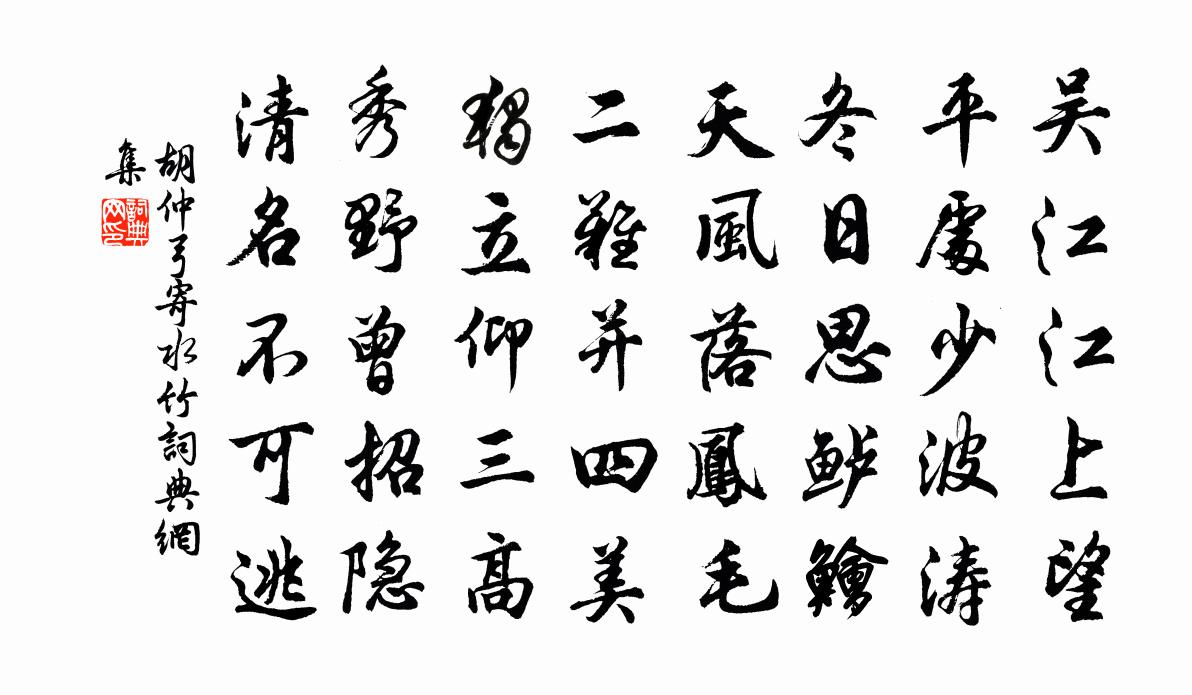 吴江江上望
平處少波涛
冬日思鲈鱠
天風落鳳毛
二難并四美
獨立仰三高
秀野曾招隐
清名不可逃
胡仲弓寄水竹詞典網
集
詞典
网印